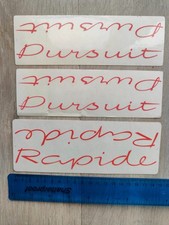 Pursuit
Pursuit
Pursuit
Pursuit
Rapide
Rapide
Shatterproof